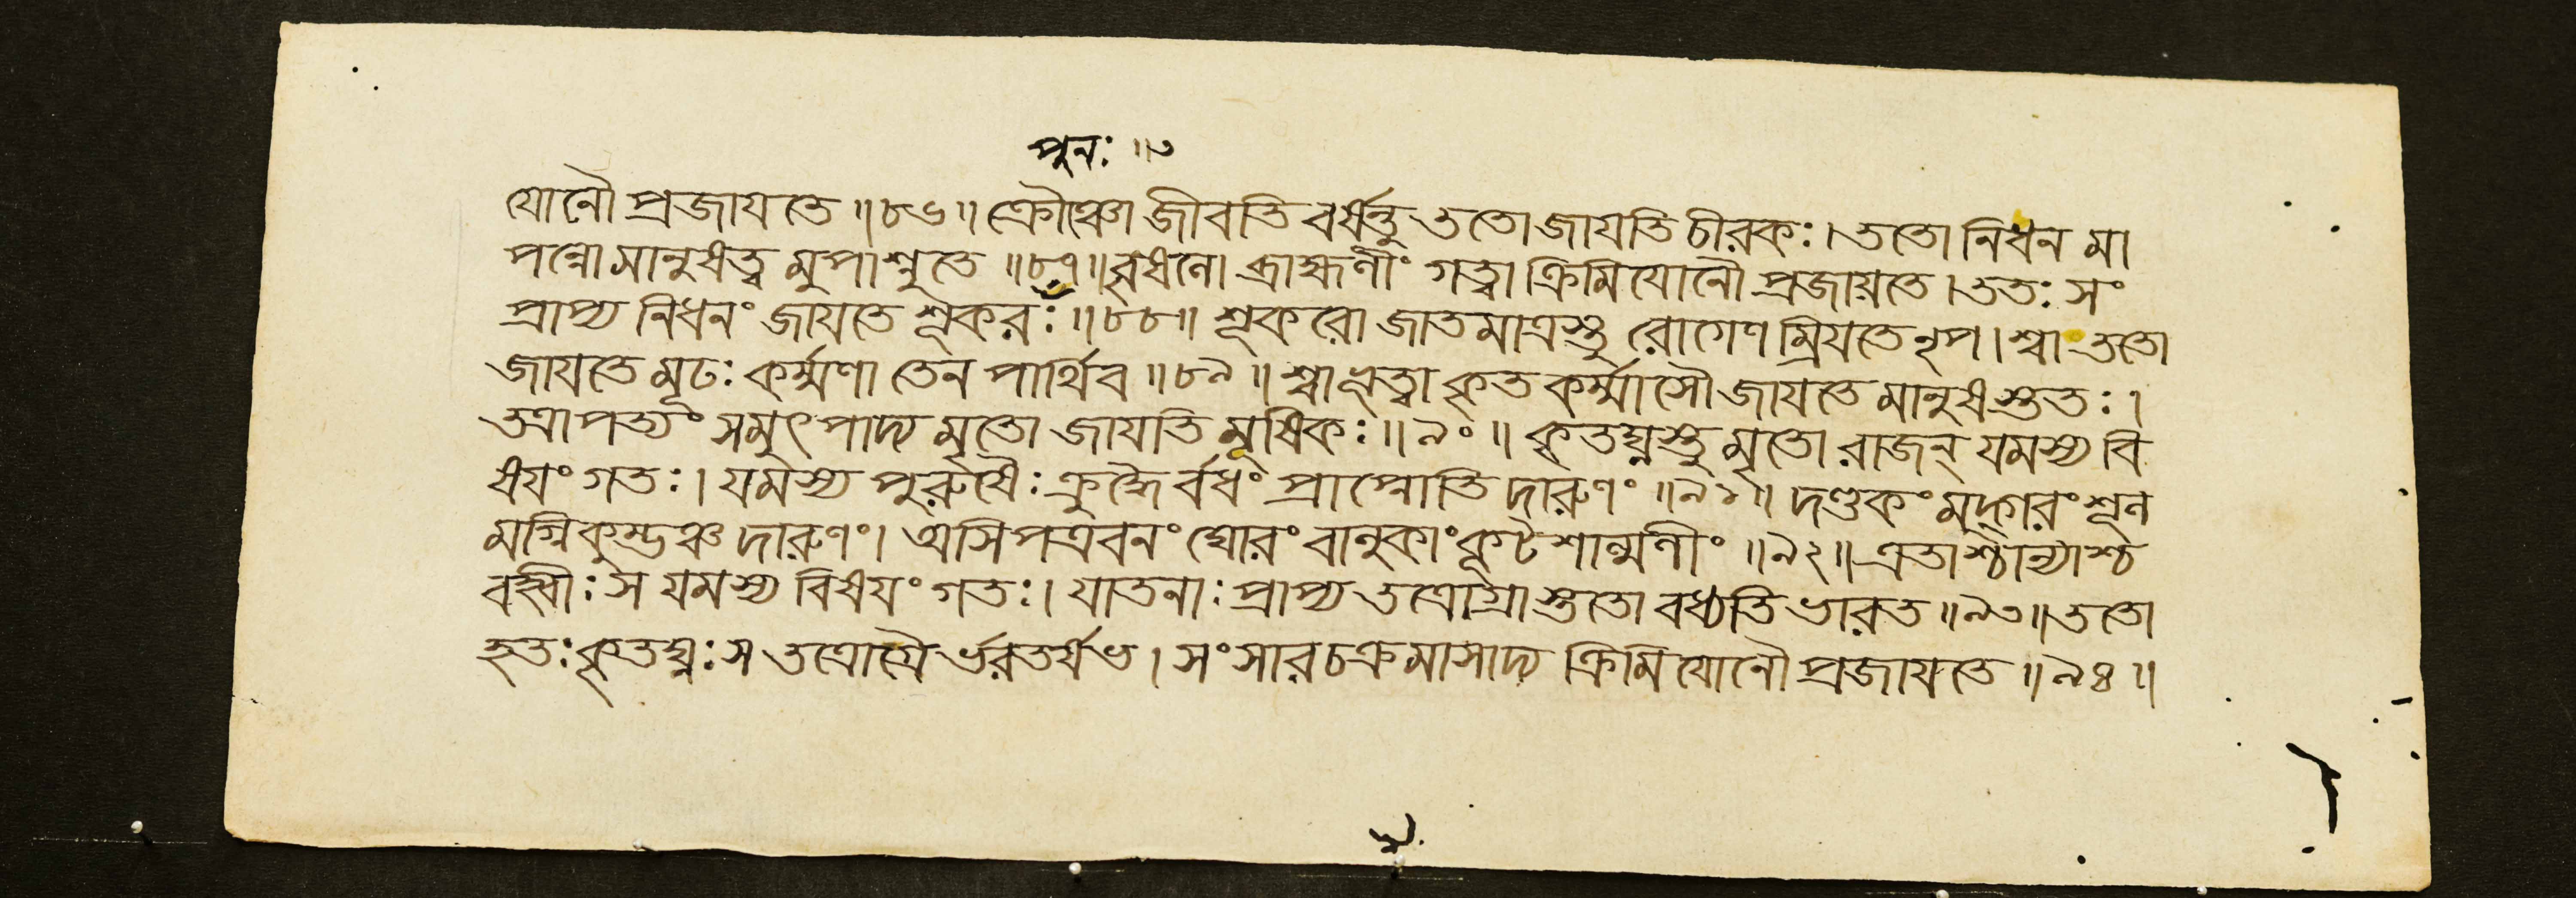 পুনঃ ॥৩
যোনৌ প্রজাযতে ॥৮৬॥ ক্রৌঞ্চো জীবতি বর্ষন্তু ততো জাযতি চীরকঃ । ততো নিধন মা
পন্নো মানুষত্ব মুপাশ্নুতে ॥৮৭॥ বৃষলো ব্রাহ্মণীং গত্বা ক্রিমিযোনৌ প্রজায়তে । ততঃ সং
প্রাপ্য নিধনং জাযতে শূকরঃ ॥৮৮॥ শূকরো জাতমাত্রস্তু রোগেণ ম্রিযতে নৃপ । শ্বা ততো
জাযতে মূঢঃ কর্ম্মণা তেন পার্থিব ॥৮৯॥ শ্বা ভূত্বা কৃতকর্ম্মাসৌ জাযতে মানুষস্ততঃ ।
তত্রাপত্যং সমুৎপাদ্য মৃতো জাযতি মূষিকঃ ॥৯০॥ কৃতঘ্নস্তু মৃতো রাজন্ যমস্য বি
ষযং গতঃ । যমস্য পুরুষৈঃ ক্রুদ্ধৈ র্বধং প্রাপ্নোতি দারুণং ॥৯১॥ দণ্ডকং মুদ্গরং শূল
মগ্নিকুম্ভঞ্চ দারুণং । অসিপত্রবনং ঘোরং বালুকাং কূটশাল্মলীং ॥৯২॥ এতাশ্চান্যাশ্চ
বহ্বীঃ স যমস্য বিষযং গতঃ । যাতনাঃ প্রাপ্য তত্রোগ্রাস্ততো বধ্যতি ভারত ॥৯৩॥ ততো
হতঃ কৃতঘ্নঃ স তত্রোগ্রৈ র্ভরতর্ষভ । সংসারচক্রমাসাদ্য ক্রিমিযোনৌ প্রজাযতে ॥৯৪॥